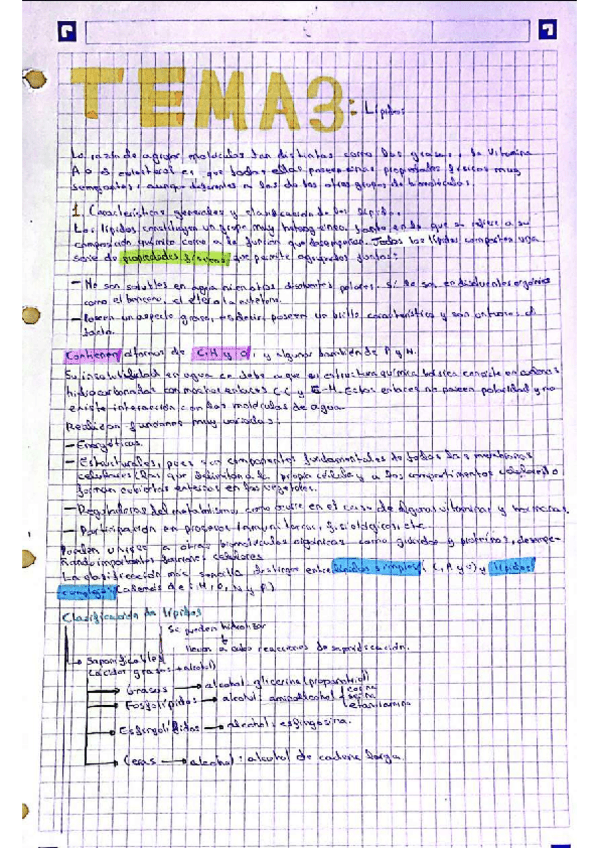 TEMA 3: Lípidos
La razón de agrupar moléculas tan distintas como las grasas, la vitamina
A o el colesterol es que todas ellas poseen unas propiedades físicas muy
semejantes, aunque diferentes a las de los otros grupos de biomoléculas.
1. Características generales y clasificación de los lípidos.
Los lípidos constituyen un grupo muy heterogéneo, tanto en lo que se refiere a su
composición química como a la función que desempeñan. Todos los lípidos comparten una
serie de propiedades físicas que permite agruparlos juntos:
- No son solubles en agua ni en otros disolventes polares. Sí lo son en disolventes orgánicos
como el benceno, el éter o la acetona.
- Poseen un aspecto graso, es decir, poseen un brillo característico y son untuosos al
tacto.
Contienen átomos de C, H y O, y algunos también de P y N.
Su insolubilidad en agua se debe a que su estructura química básica consiste en cadenas
hidrocarbonadas con muchos enlaces C-C y C-H. Estos enlaces no poseen polaridad y no
existe interacción con las moléculas de agua.
Realizan funciones muy variadas:
- Energéticas.
- Estructurales, pues son componentes fundamentales de todas las membranas
celulares (las que delimitan a la propia célula y a los compartimentos celulares) o
forman cubiertas externas en los vegetales.
- Reguladoras del metabolismo, como ocurre en el caso de algunas vitaminas y hormonas.
- Participación en procesos inmunitarios, fisiológicos, etc.
Pueden unirse a otras biomoléculas orgánicas como glúcidos y proteínas, desempe-
ñando importantes funciones celulares
La clasificación más sencilla distingue entre lípidos simples (C, H y O) y lípidos
complejos (además de C, H, O, N y P)
Clasificación de lípidos
Se pueden hidrolizar
llevan a cabo reacciones de saponificación.
Saponificables
(ácidos grasos + alcohol)
Grasas → alcohol: glicerina (propanotriol)
Fosfolípidos → alcohol: aminoalcohol colina
serina
etanolamina
Esfingolípidos → alcohol: esfingosina.
Ceras → alcohol: alcohol de cadena larga